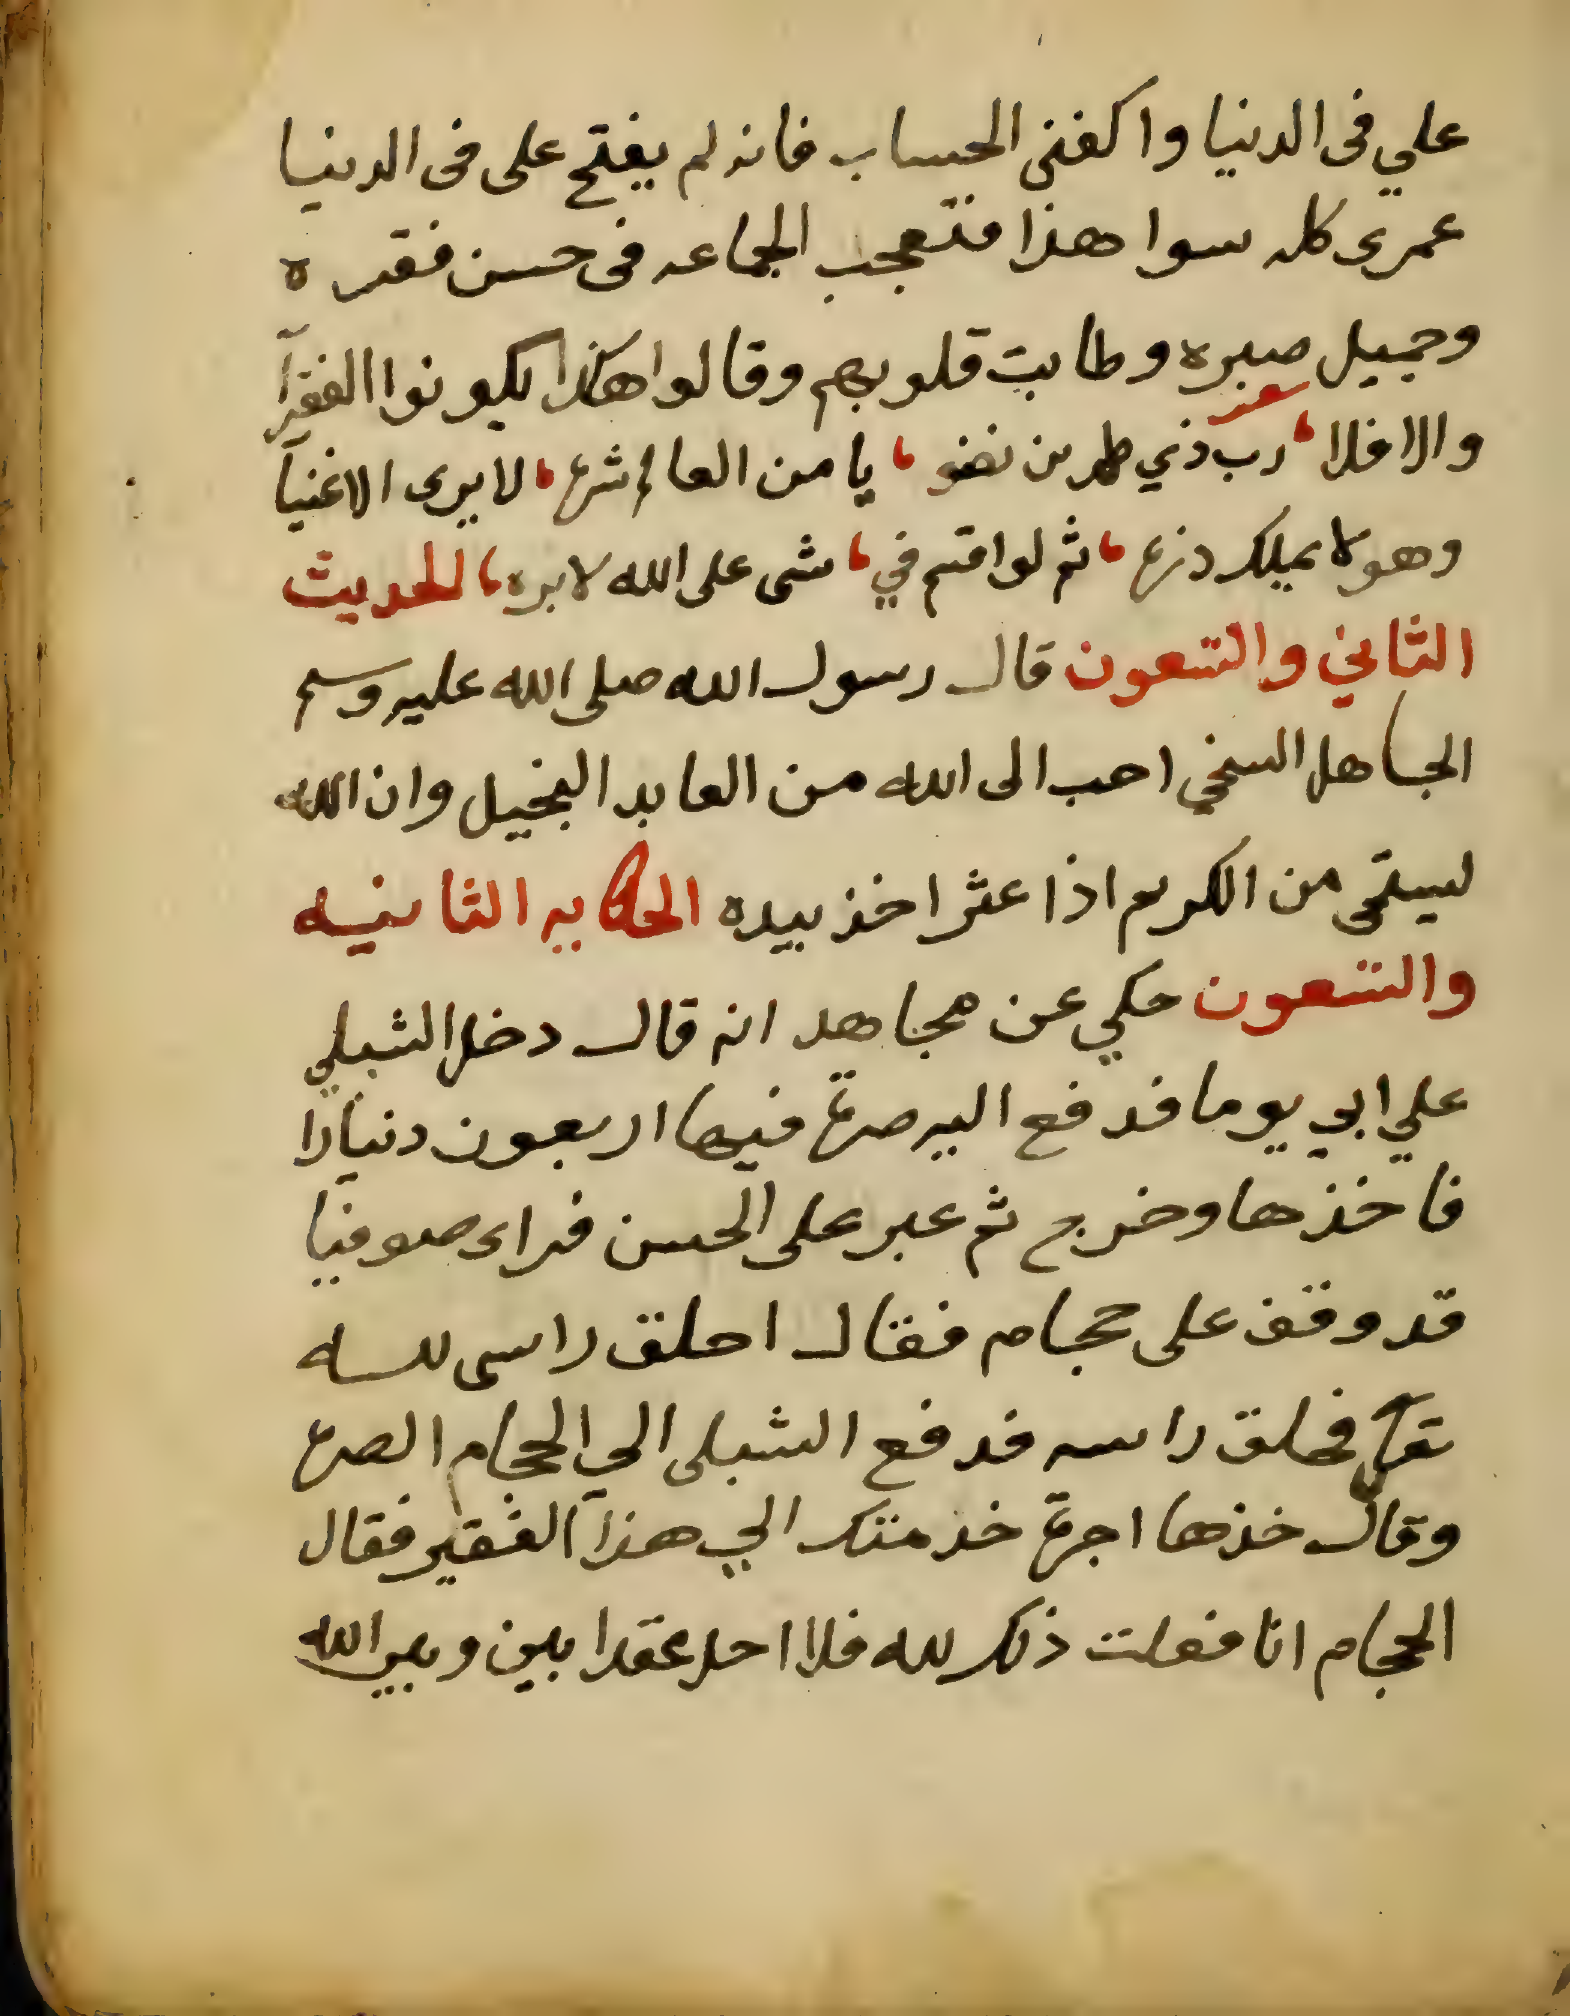 علي فى الدنيا واكفنى الحساب فانه لم يفتح على فى الدنيا
عمرى كله سوا هذا فتعجب الجماعه فى حسن فقره
وجميل صبره وطابت قلوبهم وقالوا هكذا يكونوا الفقرآ
والا فلا شعر رب ذي طمرين نضو يا من العالم شره لا يرى الاغنيا
وهو لا يملك ذره ثم لو اقسم في شى على الله لابره الحديث
الثاني والتسعون قال رسول الله صلى الله عليه وسلم
الجاهل السخي احب الى الله من العابد البخيل وان الله
ليستحى من الكريم اذا عثر اخذ بيده الحكايه الثانيه
والتسعون حكي عن مجاهد انه قال دخل الشبلي
علي ابي يوما فدفع اليه صرة فيها اربعون دنيارا
فاخذها وخرج ثم عبر على الحسن فراى صوفيا
قد وقف على حجام فقال احلق راسى لله
تعالى فحلق راسه فدفع الشبلى الي الحجام الصره
وقال خذها اجرة خدمتك الي هذا الفقير فقال
الحجام انا فعلت ذلك لله فلا احل عقدا بين وبين الله